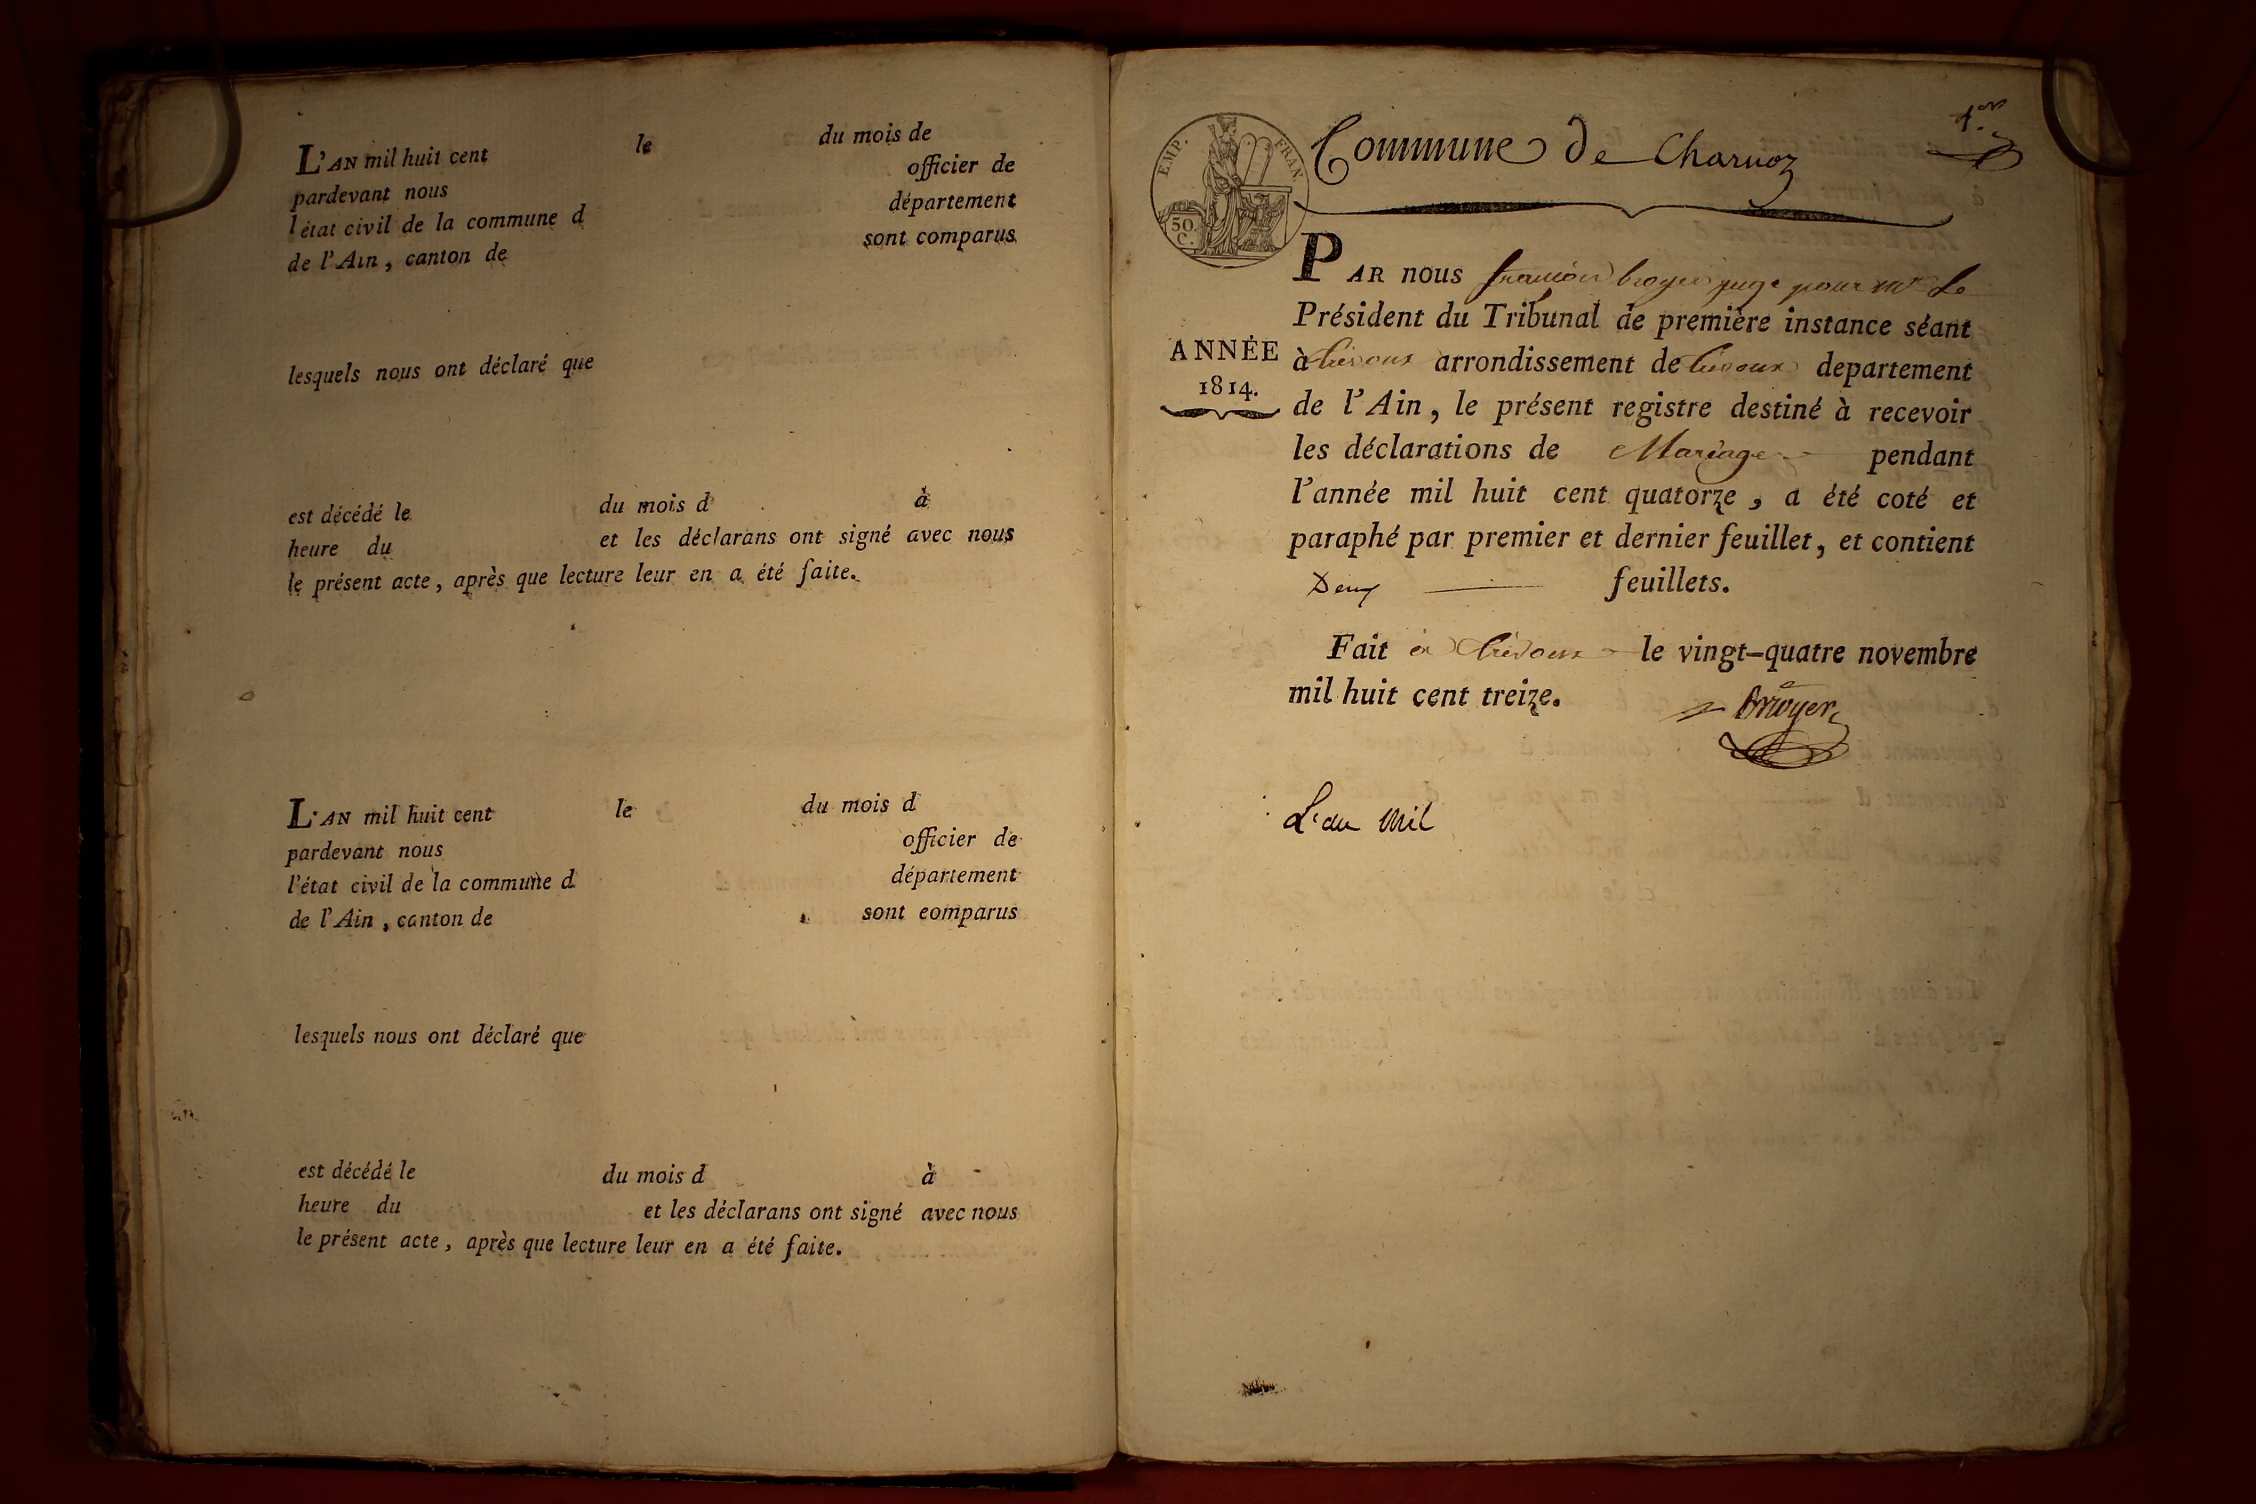 L'AN mil huit cent le du mois de
pardevant nous officier de
l'état civil de la commune d département
de l'Ain, canton de sont comparus
lesquels nous ont déclaré que
est décédé le du mois d à
heure du et les déclarans ont signé avec nous
le présent acte, après que lecture leur en a été faite.
L'AN mil huit cent le du mois d
pardevant nous officier de
l'état civil de la commune d département
de l'Ain, canton de sont eomparus
lesquels nous ont déclaré que
est décédé le du mois d à
heure du et les déclarans ont signé avec nous
le présent acte, après que lecture leur en a été faite.
1.er
EMP. FRAN.
50.
C.
Commune de Charnoz
ANNÉE
1814.
PAR nous françois broyer juge pour mr Le
Président du Tribunal de première instance séant
à trévoux arrondissement de trévoux departement
de l'Ain, le présent registre destiné à recevoir
les déclarations de Mariage pendant
l'année mil huit cent quatorze, a été coté et
paraphé par premier et dernier feuillet, et contient
Deux feuillets.
Fait à trévoux le vingt-quatre novembre
mil huit cent treize.
Broyer
L'an mil